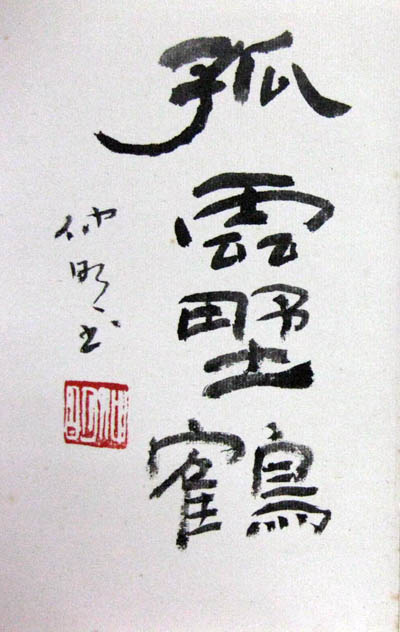 孤雲野鶴
仲明书